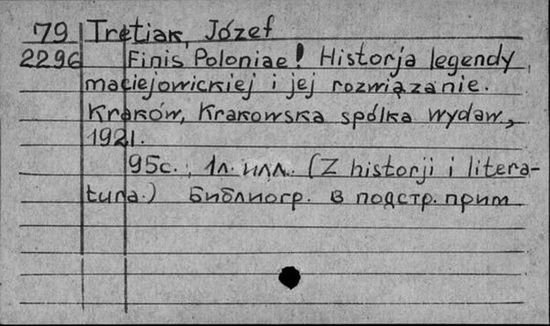 79 Tretiak, Józef
2296 Finis Poloniae! Historja legendy
maciejowickiej i jej rozwiązanie.
Kraków, Krakowska spólka wydaw.,
1921.
95с., 1л. илл. (Z historji i litera-
tura.) Библиогр. в подстр. прим